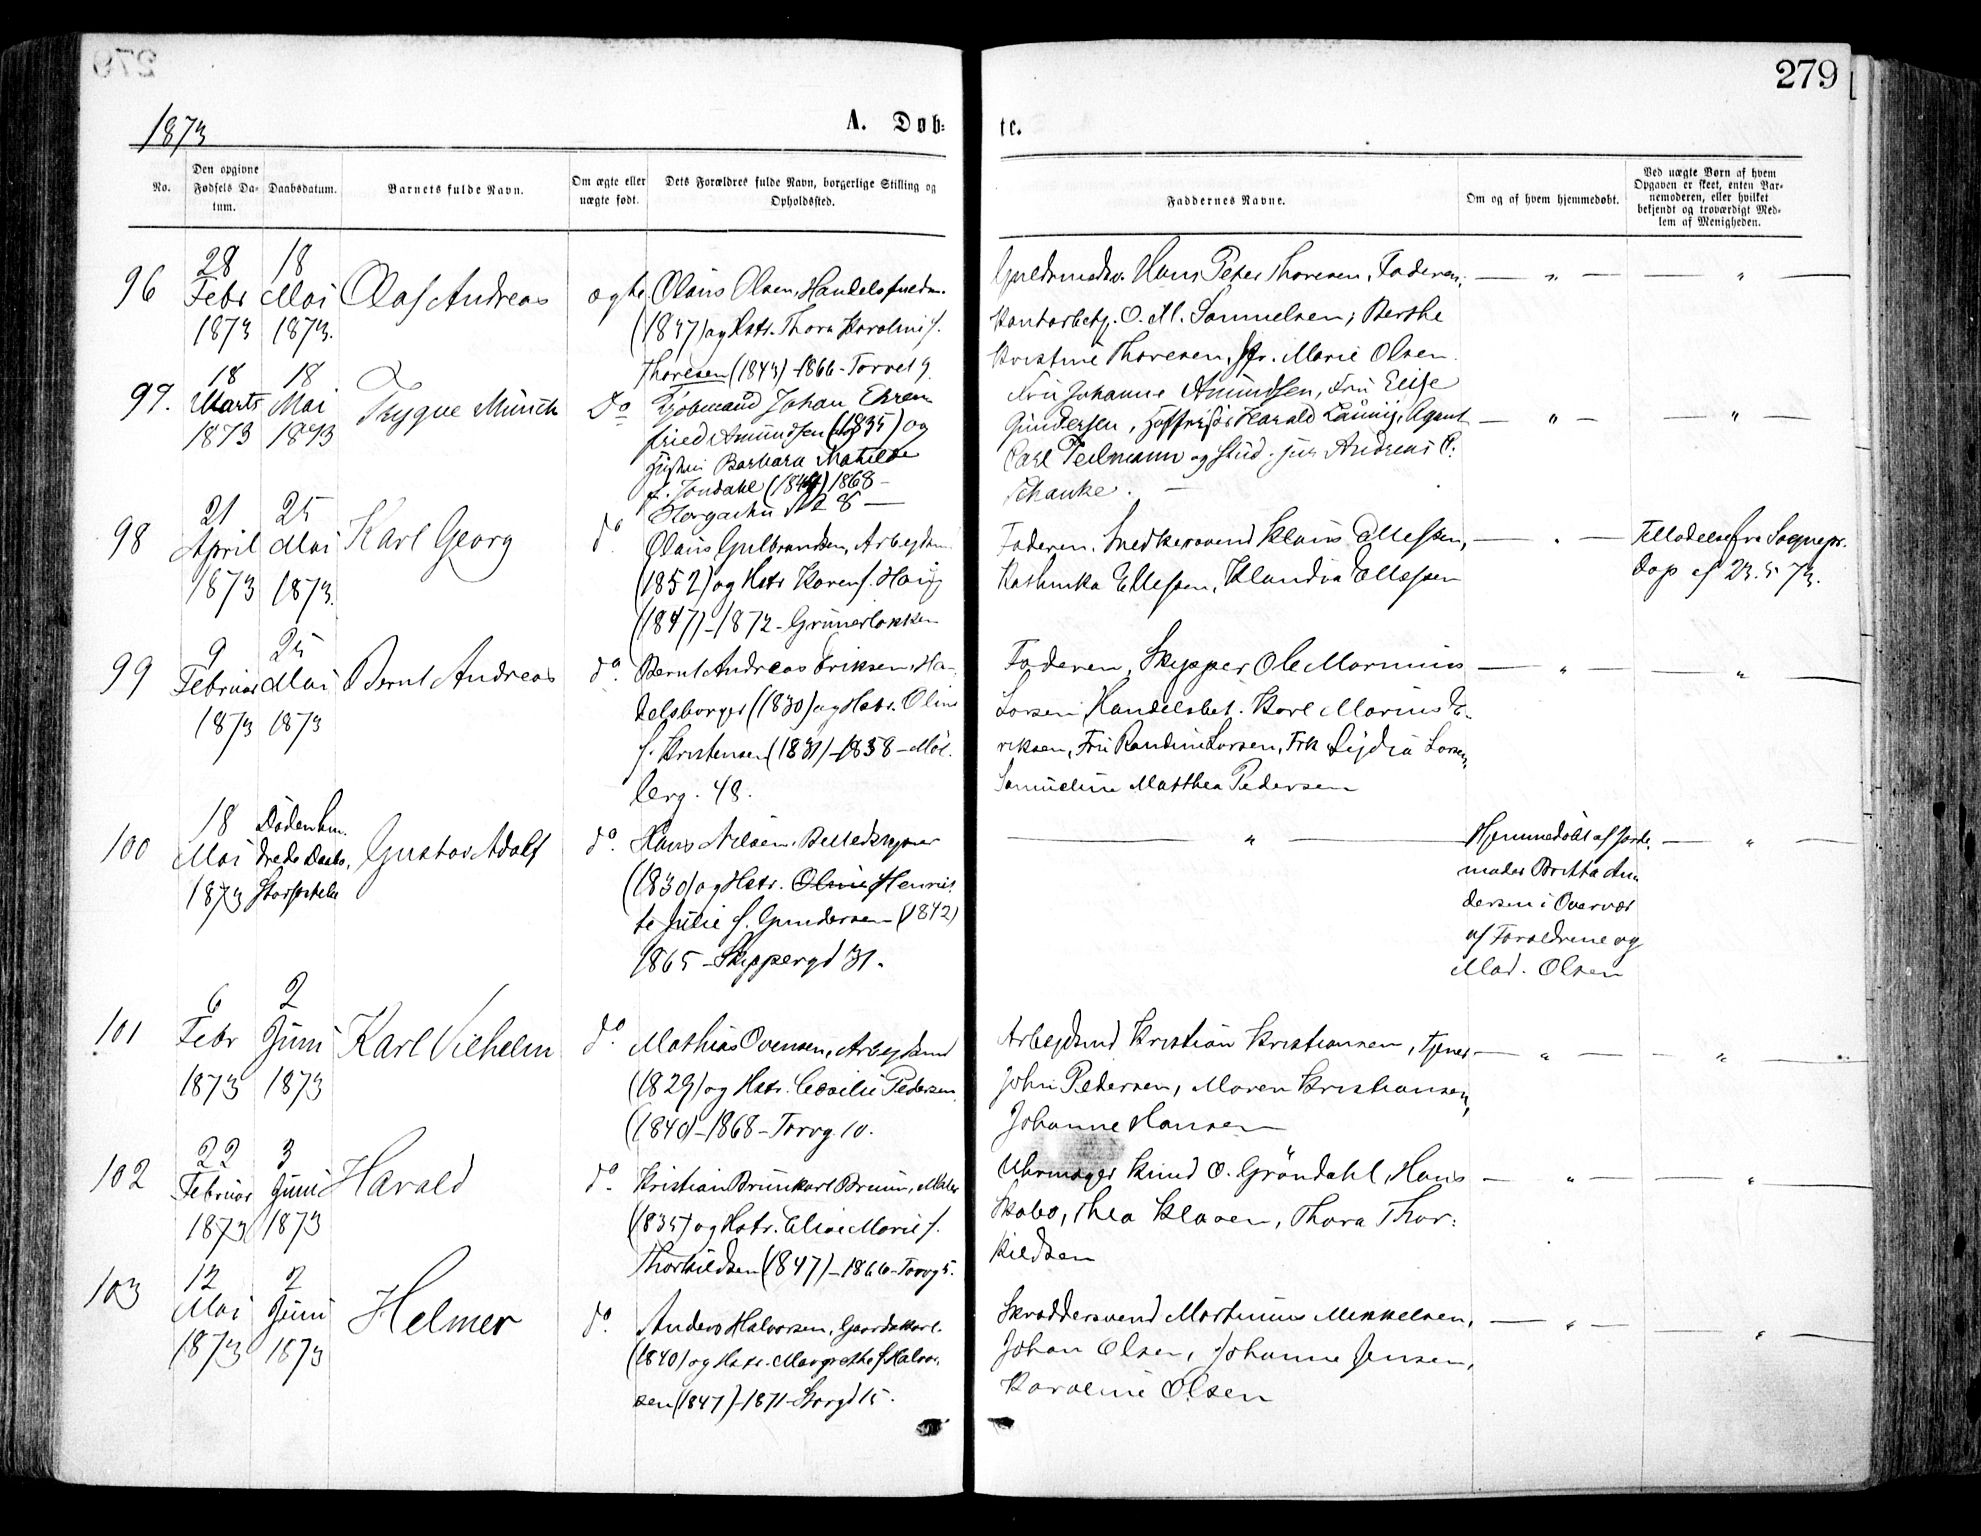 279
1873
A. Døb-
te.
No.
Den opgivne
Fødsels Da-
tum.
Daabsdatum.
Barnets fulde Navn.
Om ægte eller
uægte født.
Dets Forældres fulde Navn, borgerlige Stilling og
Opholdssted.
Faddernes Navne.
Om og af hvem hjemmedøbt.
Ved uægte Børn af hvem
Opgaven er skeet, enten Bar-
nemoderen, eller hvilket
bekjendt og troværdigt Med-
lem af Menigheden.
96
28
Febr
1873
18
Mai
1873.
Olaf Andreas
ægte
Olaus Olsen, Handelsfuldm.
(1837) og Hstr. Thora Karoline f.
Thoresen (1843) - 1866 - Torvet 9.
Guldsmedsv. Hans Peter Thoresen, Faderen,
Kontorbetj. O. M. Samuelsen; Berthe
Kristine Thoresen, Jfr. Marie Olsen.
97.
18
Marts
1873
18
Mai
1873
Trygve Münch
Do
Kjøbmand Johan Ehren-
fried Amundsen (1835) og
Hustru Barbara Matilde
f. Jondahl 1868 -
No 8 —
Fru Johanne Amundsen, Fru Elise
Gundersen, Harald Launy, Agent
Carl Teilmann og Stud. jur Andreas C.
Schanke. —
98
21
April
1873
25
Mai
1873.
Karl Georg
do
Olaus Gulbrandsen, Arbejdsm.
(1852) og Hstr Karen f. Haug
(1847) - 1872 - Grünerløkken
Faderen, Snedkersvend Klaus Ellefsen,
Kathinka Ellefsen, Klaudia Ellefsen
Tilladelse fra Sognepr.
Dop af 23.5.73.
99
9
Februar
1873
25
Mai
1873
Bernt Andreas
do.
Bernt Andreas Eriksen, Han-
delsborger (1830) og Hstr. Oline
f. Kristensen (1831) - 1858 - Møl-
lerg. 48.
Faderen, Skipper Ole Marinius
Larsen, Handelsbet. Karl Marius E-
riksen, Fru Randine Larsen, Frk Lydia Larsen,
Samueline Matthea Pedersen
100
18
Mai
1873
Døden hin-
drede Daabs-
Stadfestelse
Gustav Adolf
do.
Hans Nilsen, Billedskjærer
(1830) og Hstr. Oline Henriet-
te Julie f. Gundersen (1842)
1865 - Skippergd 31.
Hjemmedøbt af Jorde-
moder Britta An-
dersen i Overvær
af Forældrene og
Mad. Olsen
101
6
Febr
1873
2
Juni
1873
Karl Vilhelm
do.
Mathias Ovensen, Arbejdsmd
(1829) og Hstr. Cecilie Pedersen
(1840) - 1868 - Torvg. 10.
Arbejdsmd Kristian Kristiansen, Tjener
John Pedersen, Maren Kristiansen,
Johanne Hansen
102
22
Februar
1873
3
Juni
1873
Harald
do.
Kristian Brunkarl Bruun, Maler
(1835) og Hstr. Elise Marie f.
Thorkildsen (1847) - 1866 - Torvg 5.
Uhrmager Knud O. Gröndahl, Hans
Skabo, Thea Klaven, Thora Thor-
kildsen
103
12
Mai
1873
2
Juni
1873
Helmer
do.
Anders Halvorsen, Gaardskarl.
(1840) og Hstr. Margrethe f. Halvor-
sen (1847) - 1871 - Storgd 15.
Skræddersvend Martinius Mikkelsen,
Johan Olsen, Johanne Jensen,
Karoline Olsen